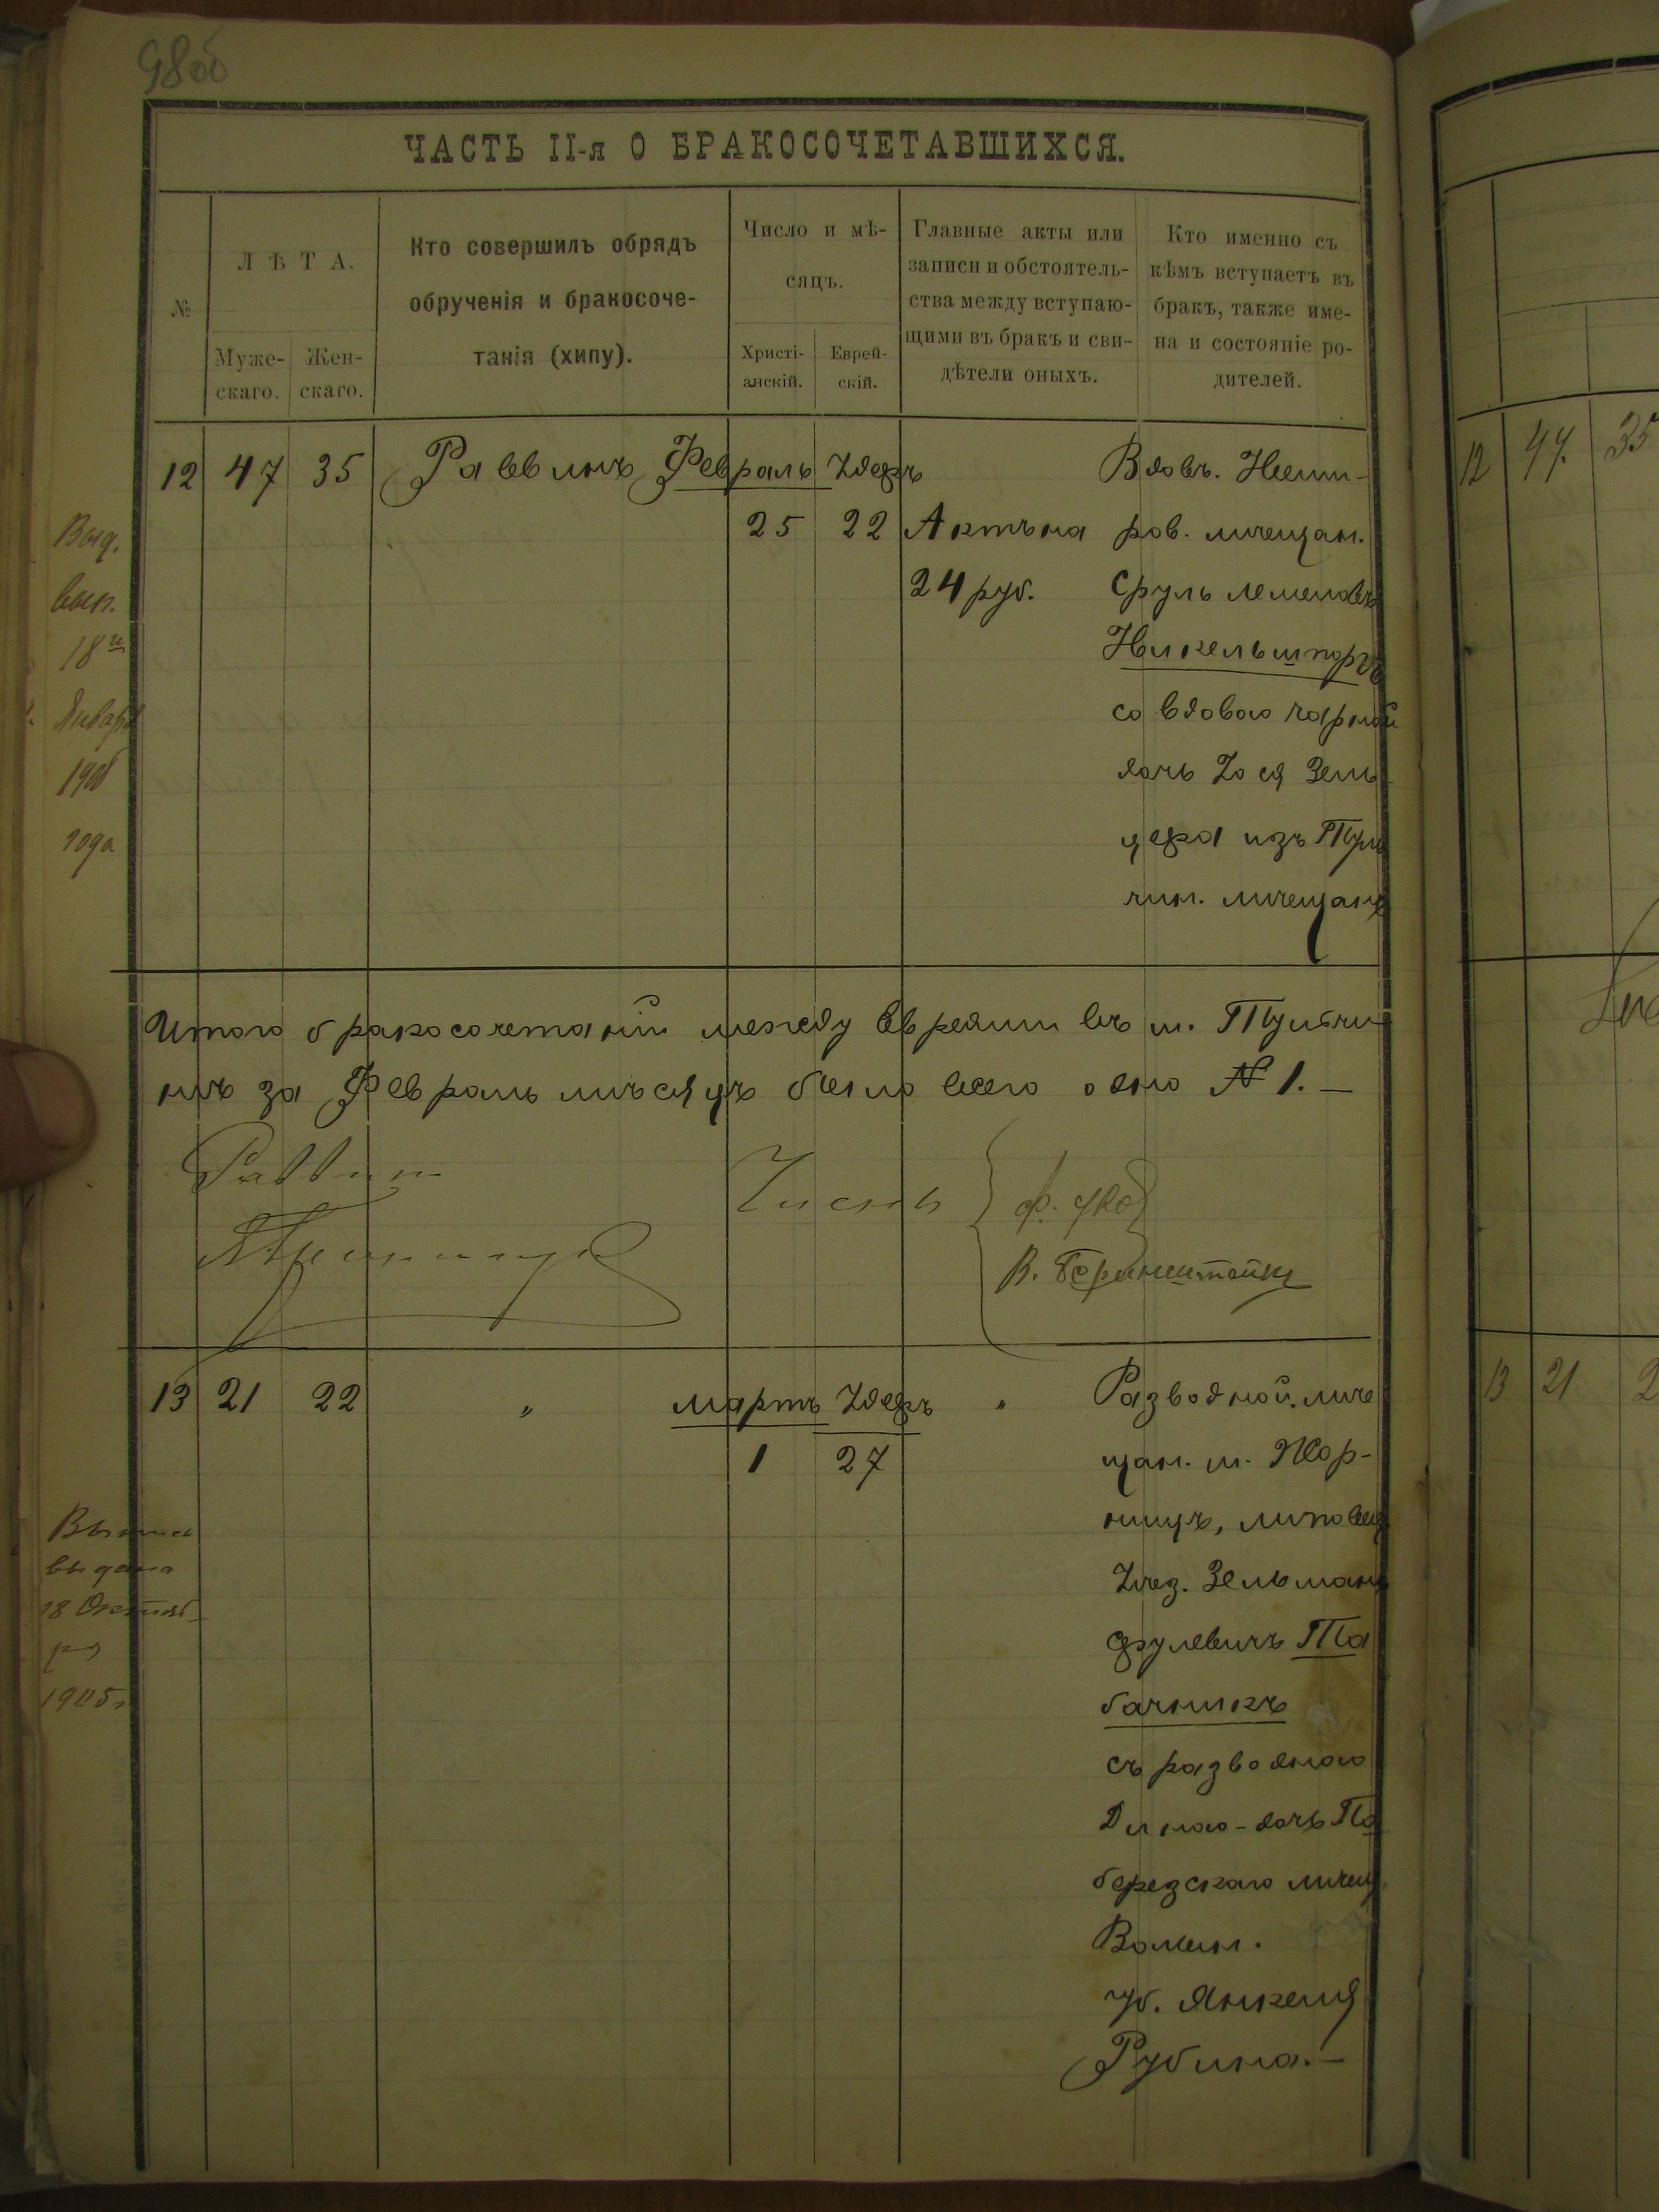 98об
ЧАСТЬ II-я О БРАКОСОЧЕТАВШИХСЯ.
№
ЛѢТА.
Муже-
скаго.
Жен-
скаго.
Кто совершилъ обрядъ
обрученія и бракосоче-
танія (хипу).
Число и мѣ-
сяцъ.
Христі-
анскій.
Еврей-
скій.
Главные акты или
записи и обстоятель-
ства между вступаю-
щими въ бракъ и сви-
дѣтели оныхъ.
Кто именно съ
кѣмъ вступаетъ въ
бракъ, также име-
на и состояніе ро-
дителей.
12 47 35 Раввинъ Февраль Адеръ
25 22
Актъ на
24 руб.
Вдовъ. Неми-
ров. мѣщан.
Сруль
со вдовою
дочь
изъ Туль
чин. мѣщанъ
Выд.
вып.
18го
Января
190
года
Итого бракосочетаній между Евреями въ м. Тульчи
нѣ за Февраль мѣсяцъ было всего одно № 1.—
Раввинъ
В. Беринштейнъ
13 21 22 " мартъ Адеръ "
1 27
Разводной мѣ
щан. м. Жор-
нищъ, липовец
уѣз. Зельманъ
Срулевичъ Та
бачникъ
съ разводною
Диною - дочь По
бережскаго мѣщ.
Волын.
губ. Янкеля
Рубина.—
Выпись
выдана
18 Октяб
ря
1905 г.
12 47 35
13 21 2